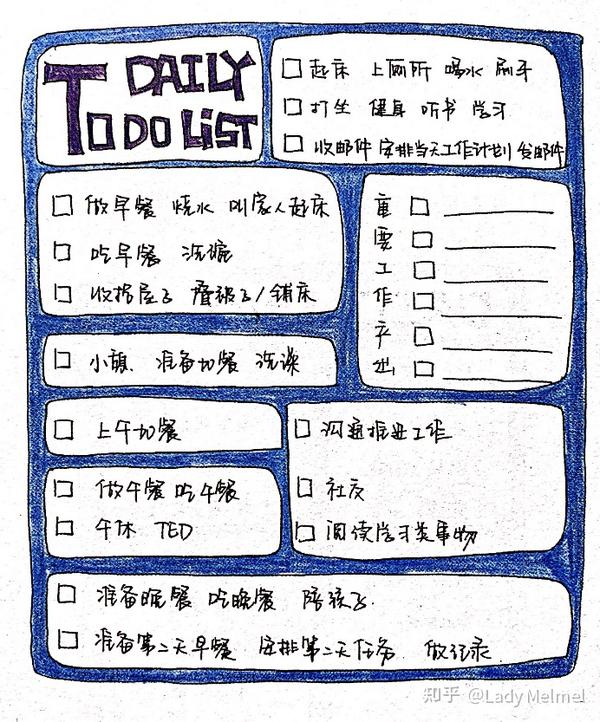 DAILY
TO DO LIST
起床 上厕所 喝水 刷牙
打坐 健身 听书 学习
收邮件 安排当天工作计划 发邮件
做早餐 烧水 叫家人起床
吃早餐 洗碗
收拾屋子 叠被子/铺床
重要工作产出
小憩、准备加餐 洗澡
上午加餐
做午餐 吃午餐
午休 TED
沟通推进工作
社交
阅读学习类事物
准备晚餐 吃晚餐 陪孩子
准备第二天早餐 安排第二天任务 做记录
知乎 @Lady Melmel